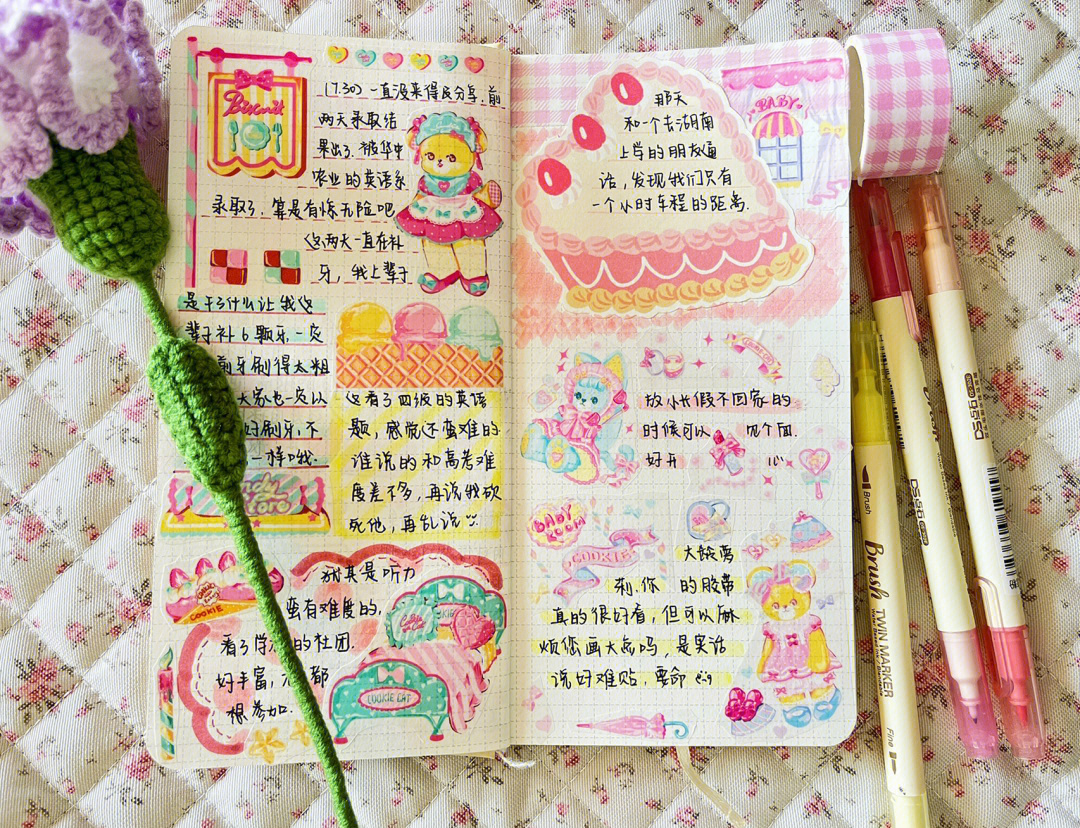 Biscuit
(7.30) 一直没来得及分享,前
两天录取结
果出了.被华中
农业的英语系
录取了,算是有惊无险吧
(这两天一直在补
牙,我上辈子
是干了什么让我这
辈子补6颗牙,一定
刷牙刷得太粗
大家也一定以
好刷牙,不
一样哦.
这看了四级的英语
题,感觉还蛮难的
谁说的和高考难
度差不多,再说我砍
死他,再乱说
尤其是听力
蛮有难度的,
看了学 的社团.
好丰富, 都
想参加.
COOKIE
COOKIE CAT
那天
和一个去湖南
上学的朋友通
话,发现我们只有
一个小时车程的距离.
BABY
放小长假不回家的
时候可以 见个面.
好开 心
BABY ROOM
COOKIE
大饭萝
莉,你 的胶带
真的很好看,但可以麻
烦您画大点吗,是实话
说好难贴,要命
Brush
Brush
TWIN MARKER
Fine